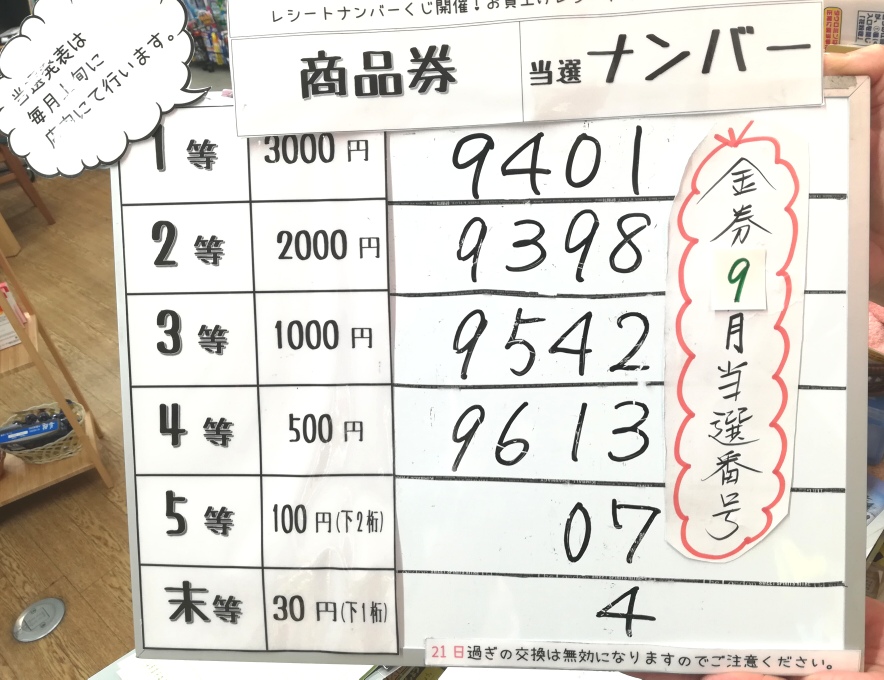 レシートナンバーくじ開催!お買上げレシ
当選発表は
毎月上旬に
店内にて行います。
商品券
当選ナンバー
1等 3000円 9401
2等 2000円 9398
3等 1000円 9542
4等 500円 9613
5等 100円(下2桁) 07
末等 30円(下1桁) 4
金券9月当選番号
21日過ぎの交換は無効になりますのでご注意ください。